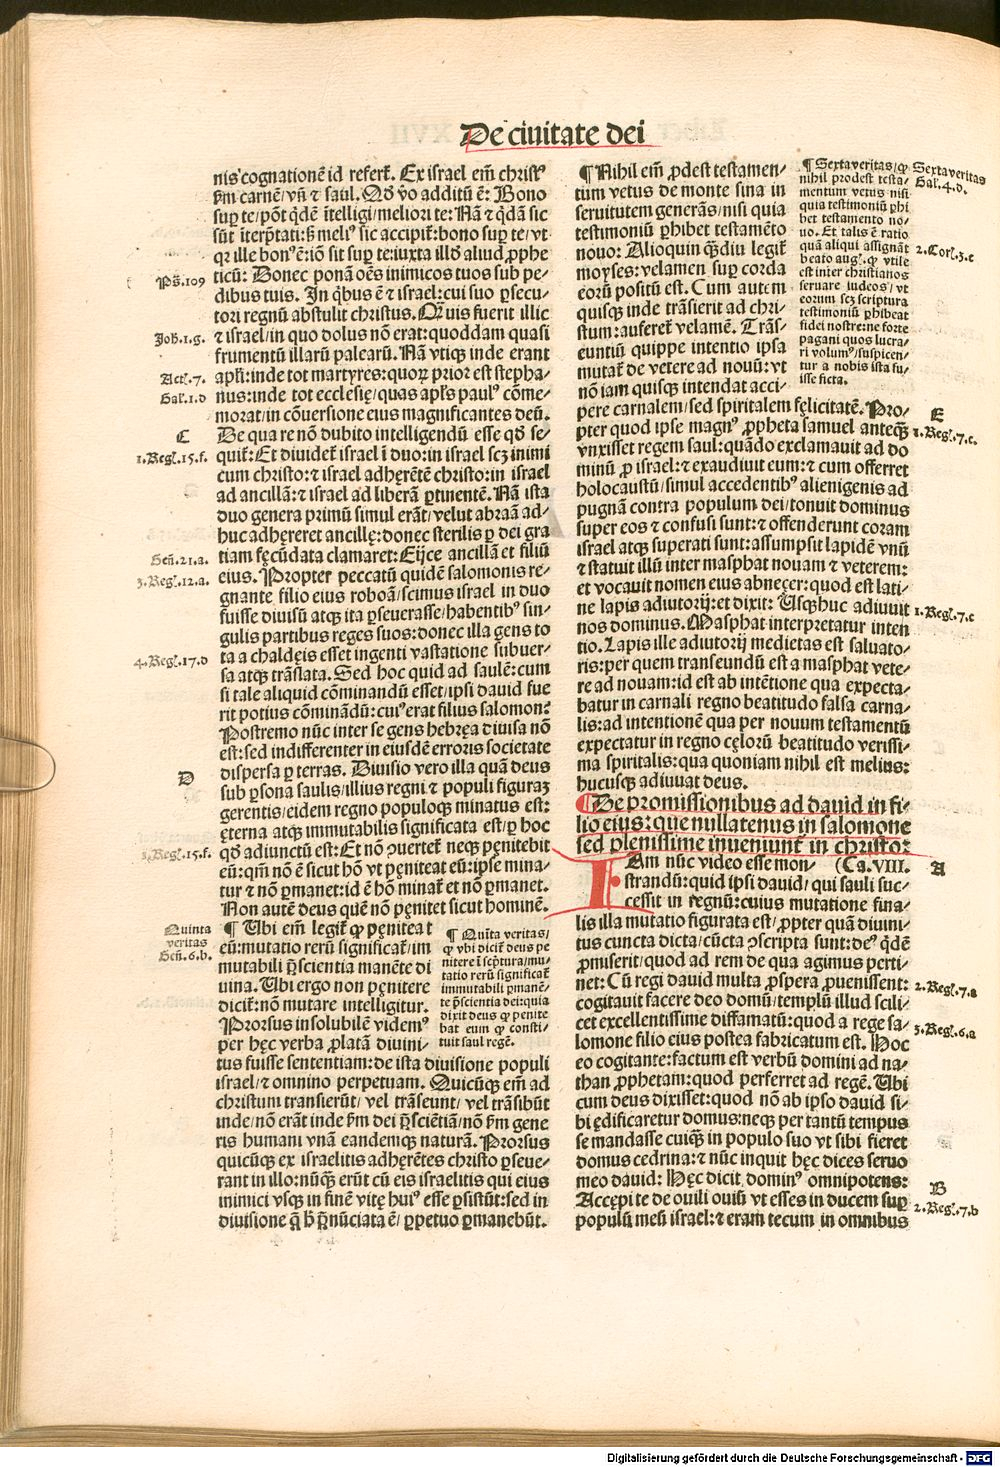 De ciuitate dei
nis cognationē id refert̄. Ex israel em̄ christꝰ
ẜm carnē/vn̄ ⁊ saul. Qd̓ v̓o additū ē: Bono
suꝑ te/pōt q̇dē ītelligi/meliori te: Nā ⁊ q̇dā sic
sūt īterp̄tati: ẜ melꝰ sic accipit̄: bono suꝑ te/vt
qr ille bonꝰ ē: iō sit suꝑ te: iuxta illd̓ aliud ꝓphe
ticū: Donec ponā oēs inimicos tuos sub pe-
dibus tuis. In q̇bus ē ⁊ israel: cui suo ꝑsecu/
tori regnū abstulit christus. Qᷓuis fuerit illic
⁊ israel/in quo dolus nō erat: quoddam quasi
frumentū illarū palearū. Nā vtiqꝫ inde erant
apłi: inde tot martyres: quoꝝ prior est stepha/
nus: inde tot ecclesię/quas apłs paulꝰ cōme/
morat/in cōuersione eius magnificantes deū.
De qua re nō dubito intelligendū esse qd̓ se/
quit̄: Et diuidet̄ israel ī duo: in israel scꝫ inimi
cum christo: ⁊ israel adhęrētē christo: in israel
ad ancillā: ⁊ israel ad liberā ꝑtinentē. Nā ista
duo genera primū simul erāt/velut abraā ad/
huc adhęreret ancillę: donec sterilis ꝑ dei gra
tiam fęcūdata clamaret: Eijce ancillā et filiū
eius. Propter peccatū quidē salomonis re/
gnante filio eius roboā/scimus israel in duo
fuisse diuisū atqꝫ ita ꝑseuerasse/habentibꝰ sin/
gulis partibus reges suos: donec illa gens to
ta a chaldęis esset ingenti vastatione subuer/
sa atqꝫ trāslata. Sed hoc quid ad saulē: cum
si tale aliquid cōminandū esset/ipsi dauid fue
rit potius cōminādū: cuiꝰ erat filius salomon?
Postremo nūc inter se gens hebręa diuisa nō
est: sed indifferenter in eiusdē erroris societate
dispersa ꝑ terras. Diuisio vero illa quā deus
sub ꝑsona saulis/illius regni ⁊ populi figuraꝫ
gerentis/eidem regno populoqꝫ minatus est:
ęterna atqꝫ immutabilis significata est/ꝑ hoc
qd̓ adiunctū est: Et nō ꝯuertet̄ neqꝫ pęnitebit
eū: qm̄ nō ē sicut hō vt pęniteat eū: ipse mina/
tur ⁊ nō ꝑmanet: id ē hō minat̄ et nō ꝑmanet.
Non autē deus quē nō pęnitet sicut hominē.
¶ Ubi em̄ legit̄ ꝙ pęniteat
eū: mutatio rerū significat̄/im
mutabili p̄scientia manēte di
uina. Ubi ergo non pęnitere
dicit̄: nō mutare intelligitur.
Prorsus insolubilē videmꝰ
per hęc verba ꝓlatā diuini/
tus fuisse sententiam: de ista diuisione populi
israel/⁊ omnino perpetuam. Quicūqꝫ em̄ ad
christum transierūt/vel trāseunt/vel trāsibūt
inde/nō erāt inde ẜm dei p̄sciētiā/nō ẜm gene
ris humani vnā eandemqꝫ naturā. Prorsus
quicūqꝫ ex israelitis adhęrētes christo ꝑseue/
rant in illo: nūqᷓ erūt cū eis israelitis qui eius
inimici vsqꝫ in finē vitę huiꝰ esse ꝑsistūt: sed in
diuisione q̄ h̓ p̄nūciata ē/ꝑpetuo ꝑmanebūt.
Pṡ.109
Joh.1.g.
Act.7.
Gal.1.d
C
1.Reg.15.f.
Gen̄.21.a.
3.Reg.12.a.
4.Reg.17.d
D
1.Reg.15.f.
Quinta
veritas
Gen̄.6.b.
¶ Quīta veritas/
ꝙ vbi dicit̄ deus pe
nitere ī scp̄tura/mu/
tatio rerū significat̄
immutabili ꝑmanē/
te p̄scientia dei: quia
dixit deus ꝙ penite
bat eum ꝙ consti/
tuit saul regē.
¶ Nihil em̄ ꝓdest testamen/
tum vetus de monte sina in
seruitutem generās/nisi quia
testimoniū ꝑhibet testamēto
nouo: Alioquin qᷓdiu legit̄
moyses: velamen suꝑ corda
eorū positū est. Cum autem
quisqꝫ inde trāsierit ad chri/
stum: auferet̄ velamē. Trās/
euntiū quippe intentio ipsa
mutat̄ de vetere ad nouū: vt
nō iam quisqꝫ intendat acci/
pere carnalem/sed spiritalem fęlicitatē. Pro/
pter quod ipse magnꝰ ꝓpheta samuel anteqᷓꝫ
vnxisset regem saul: quādo exclamauit ad do
minū ꝓ israel: ⁊ exaudiuit eum: ⁊ cum offerret
holocaustū/simul accedentibꝰ alienigenis ad
pugnā contra populum dei/tonuit dominus
super eos ⁊ confusi sunt: ⁊ offenderunt coram
israel atqꝫ superati sunt: assumpsit lapidē vnū
⁊ statuit illū inter masphat nouam ⁊ veterem:
et vocauit nomen eius abneçer: quod est lati/
ne lapis adiutorij: et dixit: Usqꝫhuc adiuuit
nos dominus. Masphat interpretatur inten
tio. Lapis ille adiutorij medietas est saluato/
ris: per quem transeundū est a masphat vete/
re ad nouam: id est ab intētione qua expecta/
batur in carnali regno beatitudo falsa carna/
lis: ad intentionē qua per nouum testamentū
expectatur in regno cęlorū beatitudo verissi/
ma spiritalis: qua quoniam nihil est melius:
hucusqꝫ adiuuat deus.
¶De promissionibus ad dauid in fi/
lio eius: que nullatenus in salomone
sed plenissime inueniunt̄ in christo:
(Ca. VIII.
IAm nūc video esse mon/
strandū: quid ipsi dauid/qui sauli suc/
cessit in regnū: cuius mutatione fina/
lis illa mutatio figurata est/ꝓpter quā diuini/
tus cuncta dicta/cūcta ꝯscripta sunt: deꝰ q̇dē
ꝓmiserit/quod ad rem de qua agimus perti/
net: Cū regi dauid multa ꝓspera ꝓuenissent:
cogitauit facere deo domū/templū illud scili/
cet excellentissime diffamatū: quod a rege sa/
lomone filio eius postea fabricatum est. Hoc
eo cogitante: factum est verbū domini ad na/
than ꝓphetam: quod perferret ad regē. Ubi
cum deus dixisset: quod nō ab ipso dauid si/
bi ędificaretur domus: neqꝫ per tantū tempus
se mandasse cuiqᷓ in populo suo vt sibi fieret
domus cedrina: ⁊ nūc inquit hęc dices seruo
meo dauid: Hęc dicit dominꝰ omnipotens:
Accepi te de ouili ouiū vt esses in ducem suꝑ
populū meū israel: ⁊ eram tecum in omnibus
¶ Sexta veritas/ꝙ
nihil prodest testa/
mentum vetus nisi
quia testimoniū phi
bet testamento no/
uo. Et talis ē ratio
quā aliqui assignāt
beato aug. ꝙ vtile
est inter christianos
seruare iudeos/vt
eorum scꝫ scriptura
testimoniū ꝑhibeat
fidei nostre: ne forte
pagani quos lucra/
ri volumꝰ/suspicen/
tur a nobis ista fu/
isse ficta.
Sexta veritas
Gal.4.d.
2.Cor.3.c
E
1.Reg.7.c.
1.Reg.7.c
A
2.Reg.7.a
3.Reg.6.a
B
2.Reg.7.b
Digitalisierung gefördert durch die Deutsche Forschungsgemeinschaft - DFG